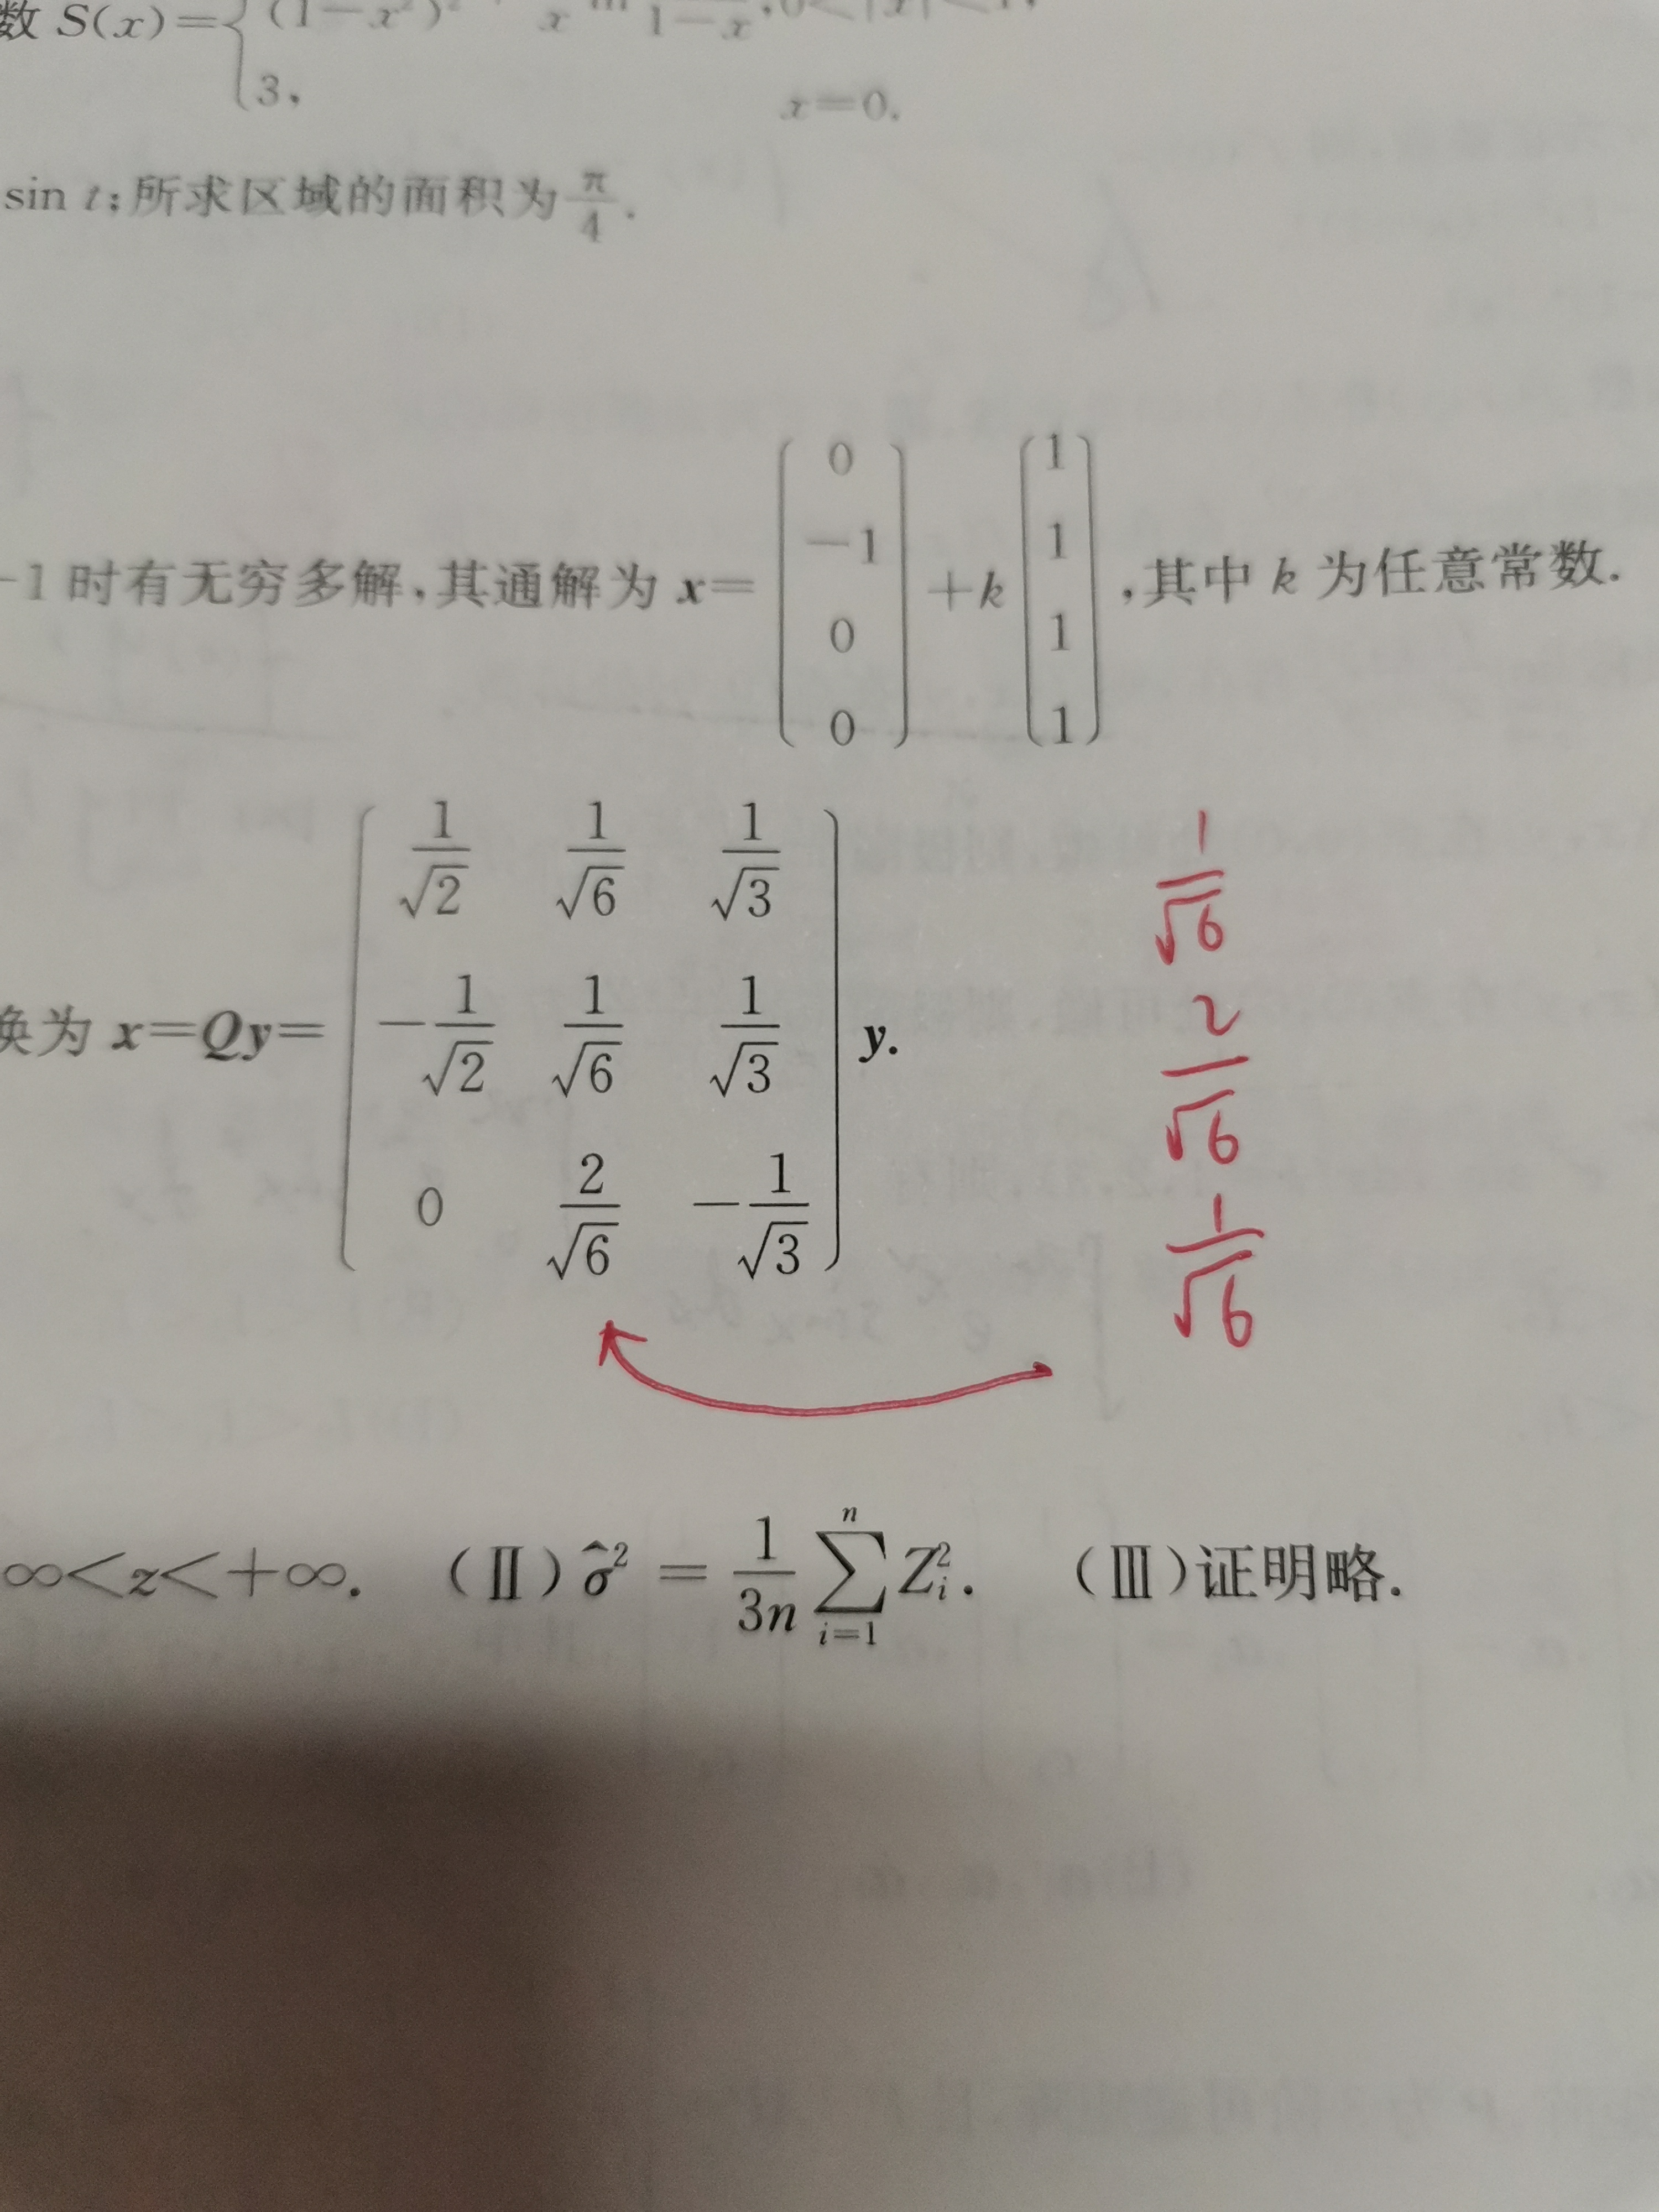 数 S(x)={(1-x²)² · x 1-x ,0<|x|<1,
3, x=0.
sin t;所求区域的面积为 π/4.
-1 时有无穷多解,其通解为 x= (0, -1, 0, 0) +k (1, 1, 1, 1) ,其中 k 为任意常数.
1/√2 1/√6 1/√3
换为 x=Qy= -1/√2 1/√6 1/√3 y.
0 2/√6 -1/√3
1/√6
2/√6
1/√6
∞<z<+∞. (Ⅱ) σ̂² = 1/3n ∑_{i=1}^{n} Z_i². (Ⅲ)证明略.